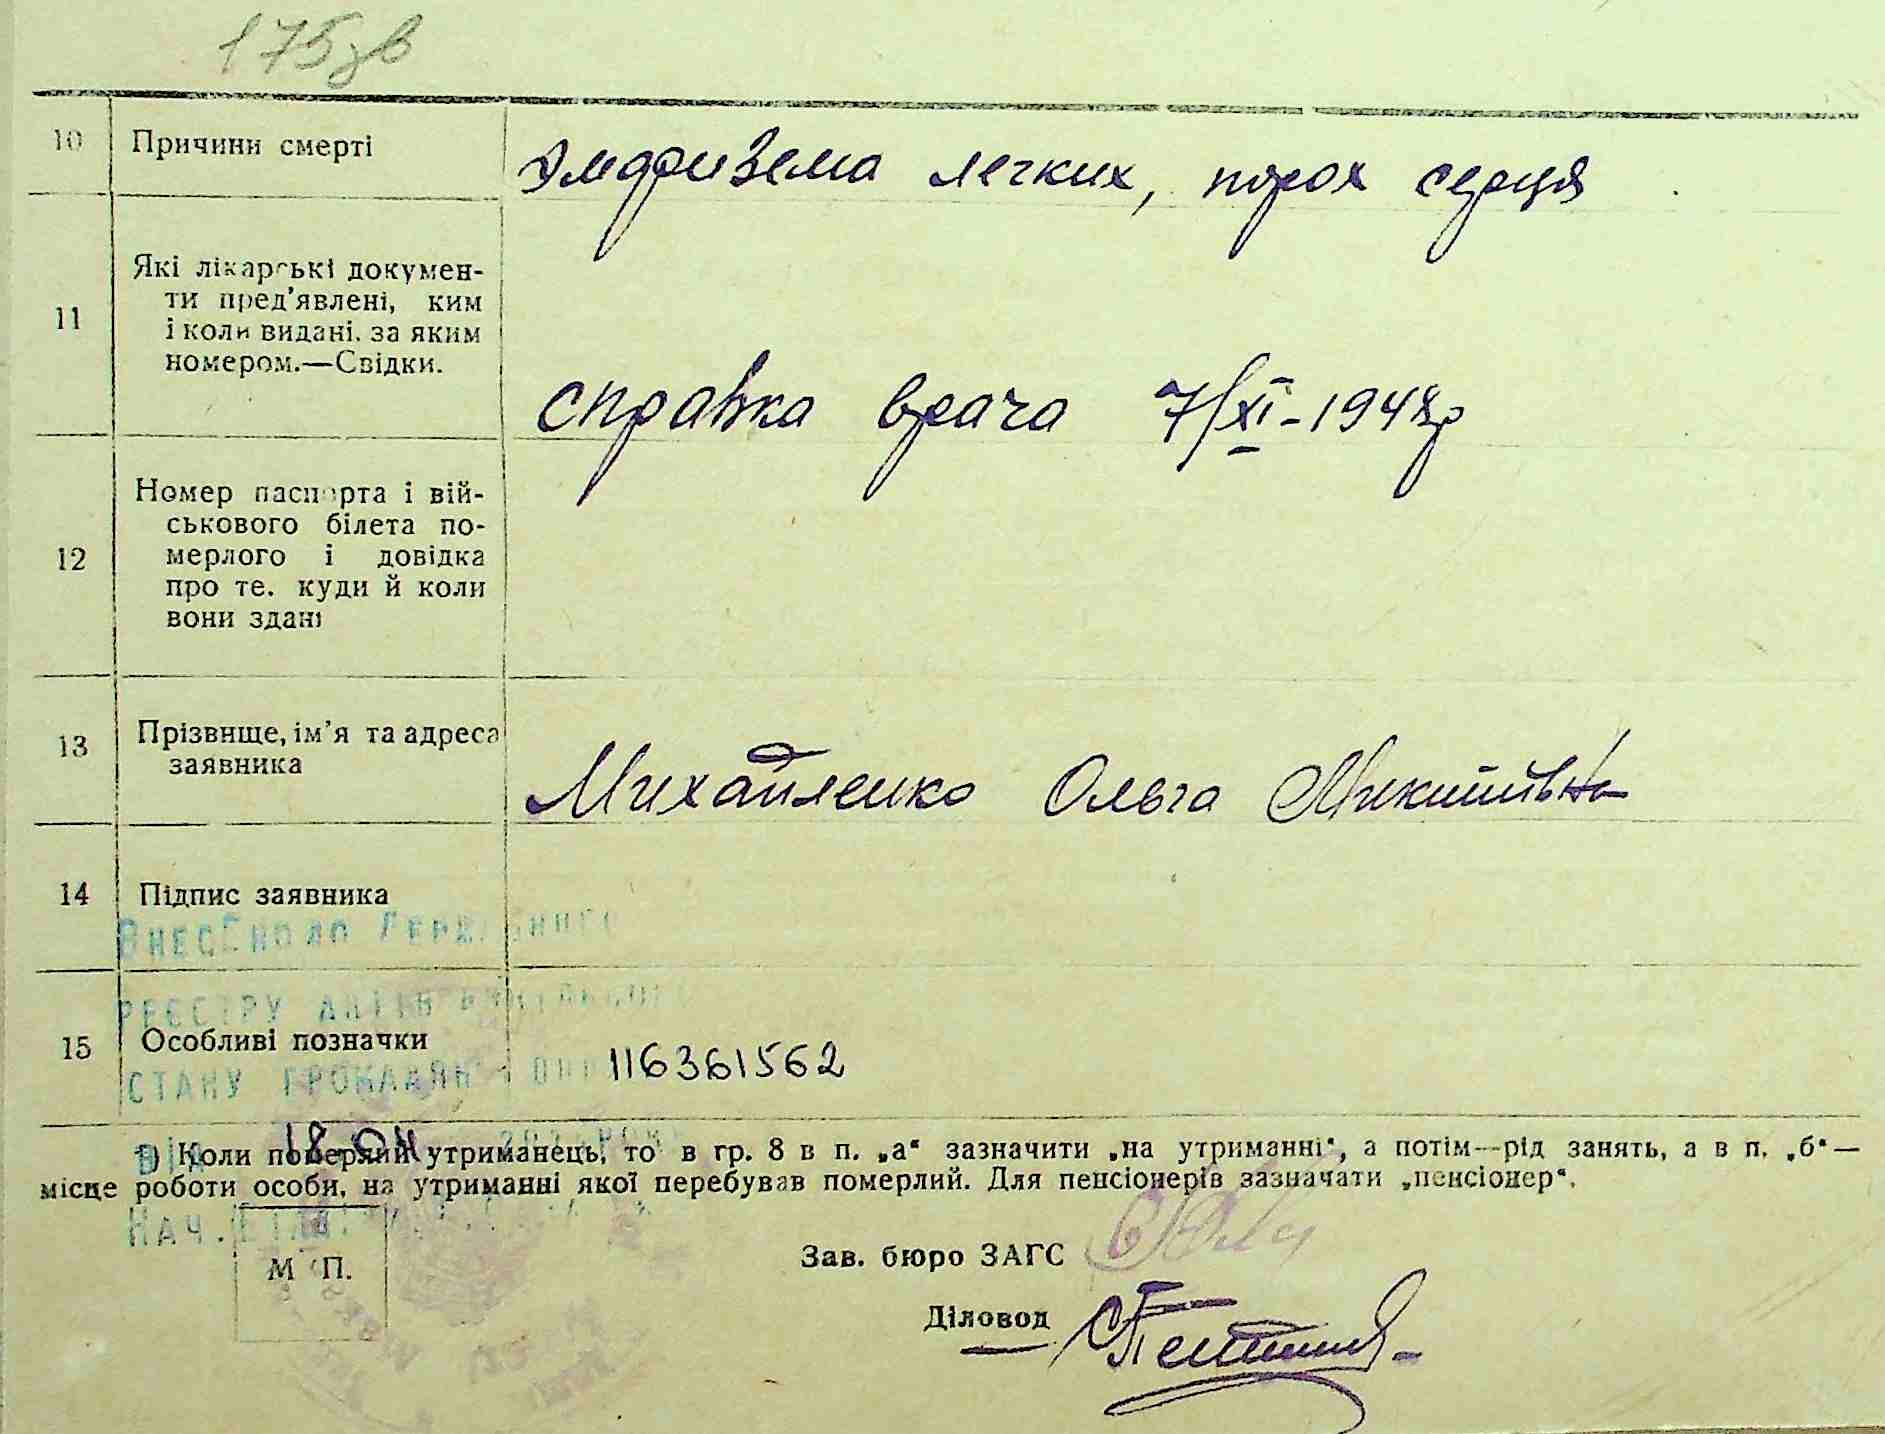 175зв
10 Причини смерті Эмфизема легких, порок серця
11 Які лікарські докумен-
ти пред'явлені, ким
і коли видані. за яким
номером.—Свідки.
справка врача 7/XI-1948р
12 Номер паспорта і вій-
ськового білета по-
мерлого і довідка
про те. куди й коли
вони здані
13 Прізвище, ім'я та адреса
заявника
Михайленко Ольга Микитівна
14 Підпис заявника
Внесено до Державного
реєстру актів цивільного
15 Особливі позначки
стану громадян 116361562
від 18.04
1) Коли померлий утриманець, то в гр. 8 в п. „а“ зазначити „на утриманні“, а потім—рід занять, а в п. „б“—
місце роботи особи, на утриманні якої перебував померлий. Для пенсіонерів зазначати „пенсіонер“.
Нач.
М П.
Зав. бюро ЗАГС
Діловод